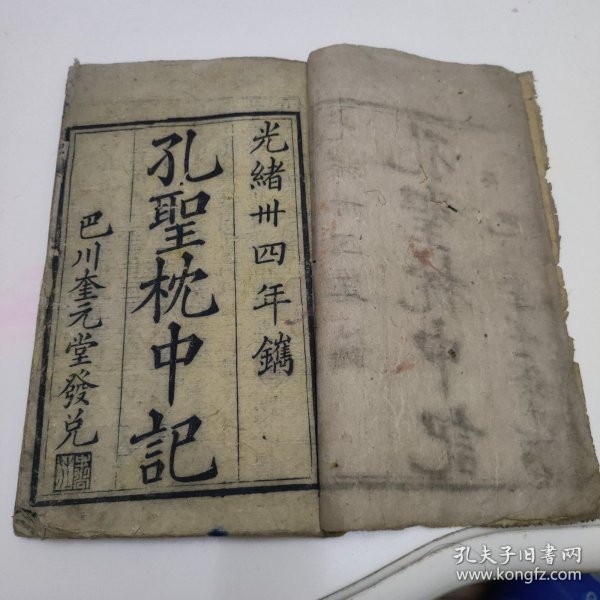 光緒卅四年鐫
孔聖枕中記
巴川奎元堂發兑
孔夫子旧書网
www.kongfz.com